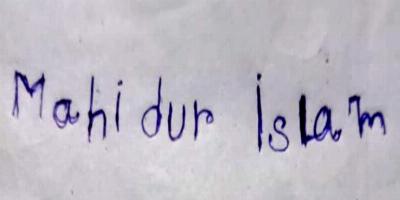 Mahidur islam